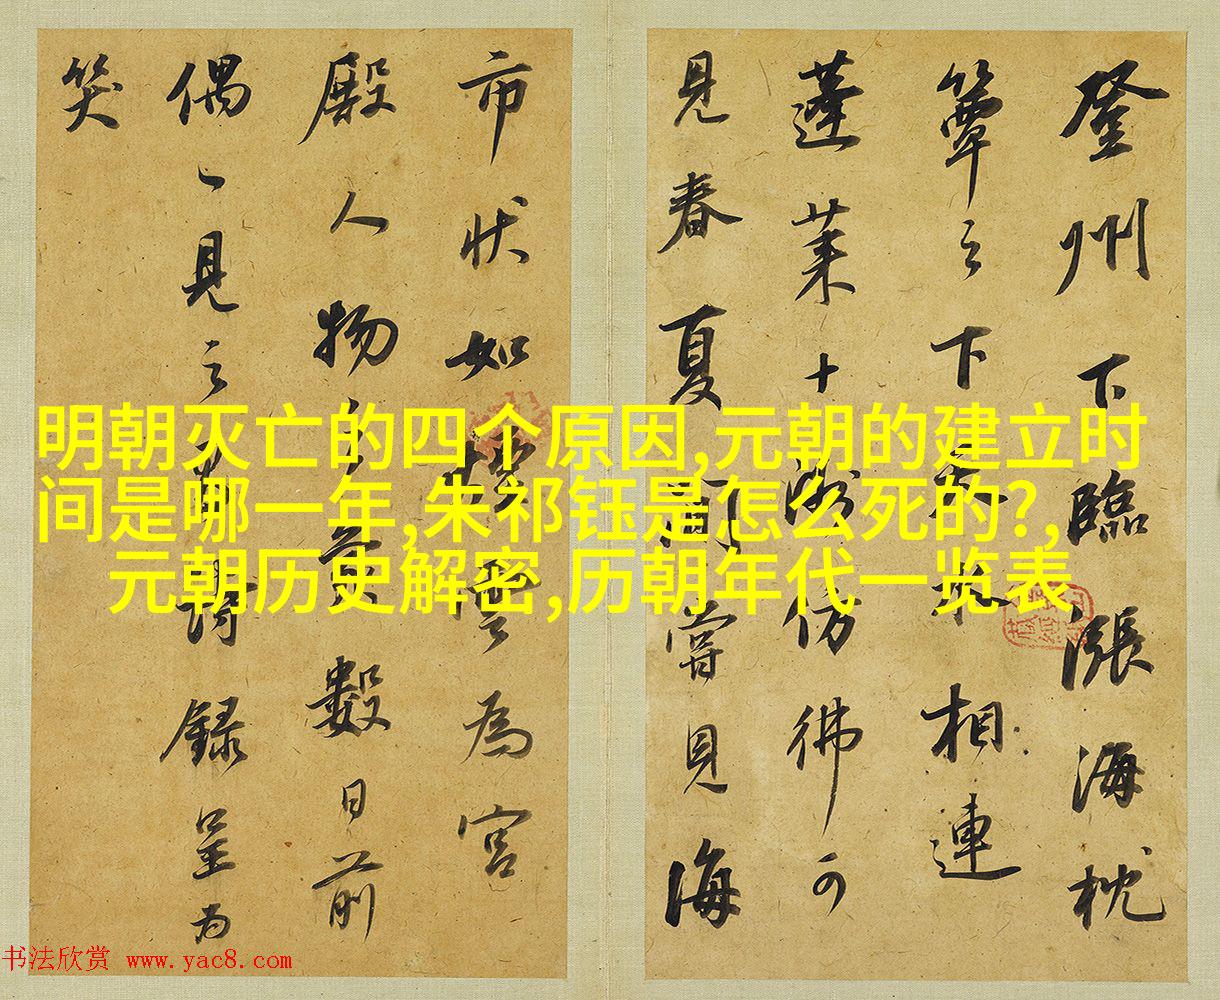 登州下臨漲海枕
簟之下天水相連
蓬莱十洲仿彿可
見春夏間嘗見海
市狀如樓雲為宮
殿人物之象數日前
偶一見之有詩録呈為
笑
明朝灭亡的四个原因,元朝的建立时
间是哪一年,朱祁钰是怎么死的?,
元朝历史解密,历朝年代一览表
书法欣赏 www.yac8.com